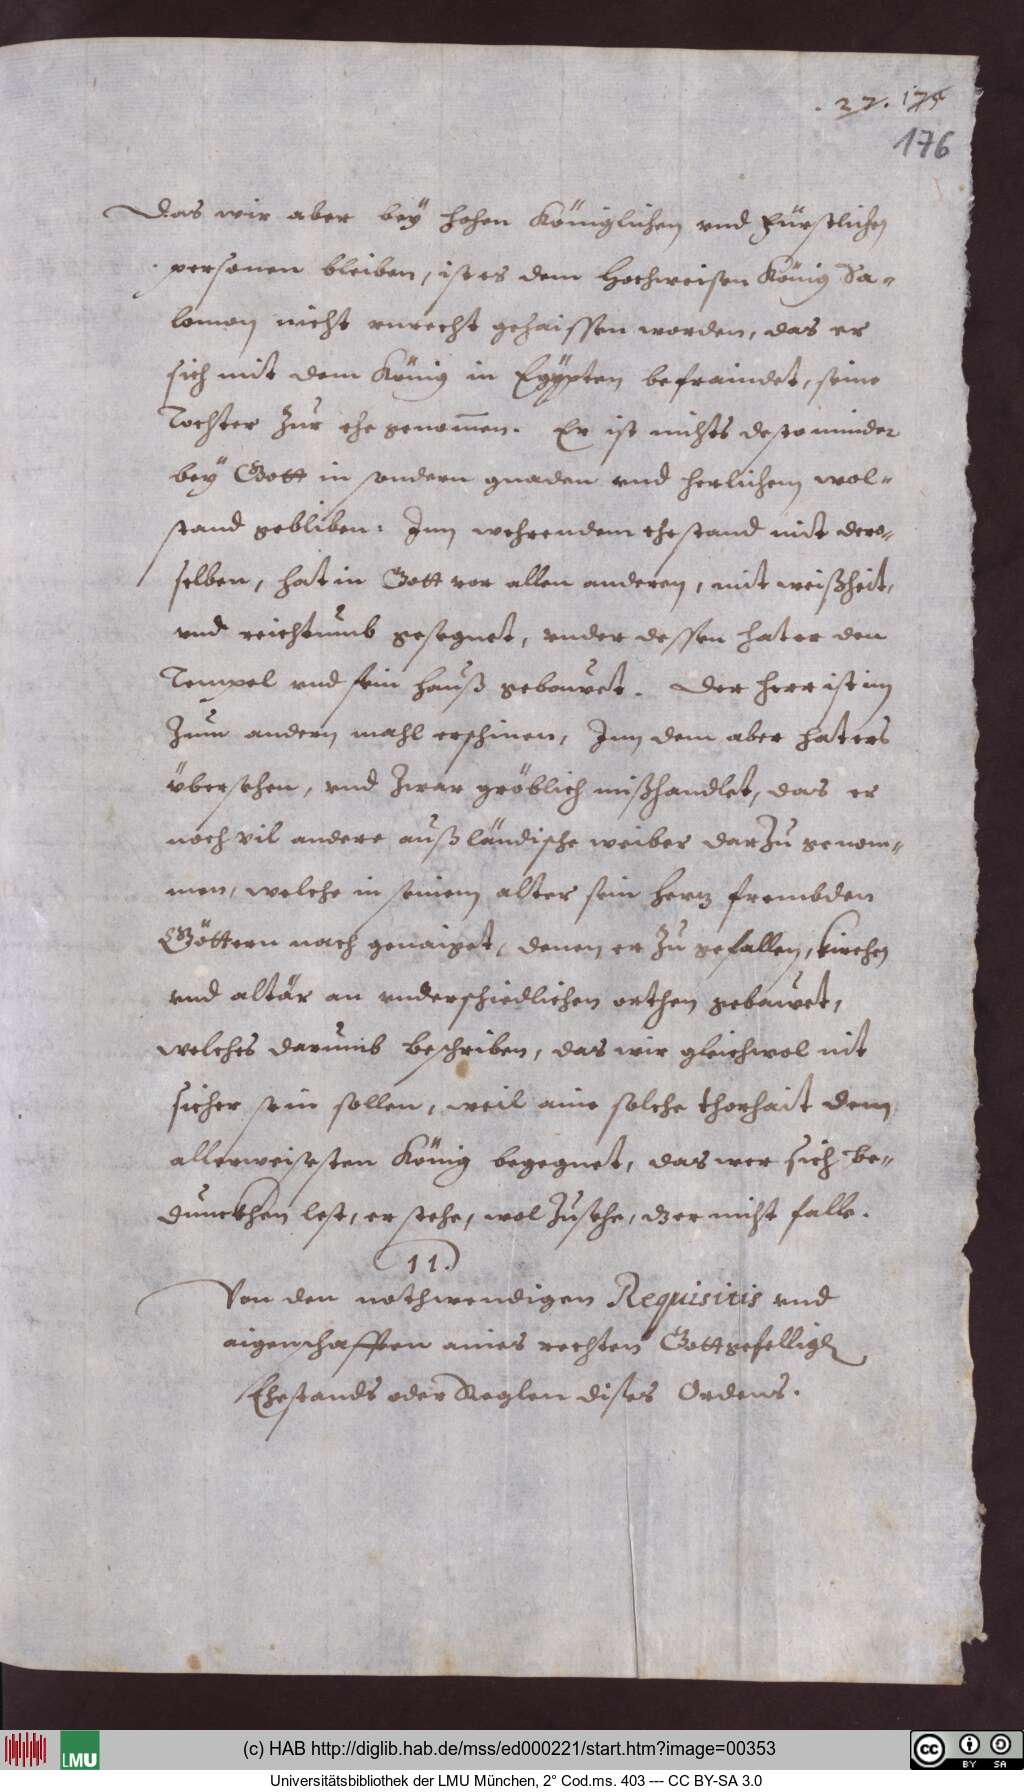 . 27. 175
176
Das wir aber beÿ hohen Königlichen vnd Fürstlichen
personen bleiben, ist es dem Hochweisen König Sa-
lomon nicht vnrecht gehaissen worden, das er
sich mit dem König in Egÿpten befraindet, seine
Tochter zur ehe genom̅en. Er ist nichts desto minder
beÿ Gott in sondern gnaden vnd herlichem wol-
stand gebliben: Inn wehrendem ehestand mit der-
selben, hat in Gott vor allen anderen, mit weißheit,
vnd reichtumb gesegnet, vnder dessen hat er den
Tempel vnd sein hauß gebauwet. Der herr ist im
zum andern mahl erschinen, Inn dem aber hat ers
übersehen, vnd zwar gröblich mißhandlet, das er
noch vil andere außländische weiber darzu genom-
men, welche in seinem alter sein hertz frembden
Göttern nach genaiget, denen er zu gefallen, kirchen
vnd altär an vnderschiedlichen orthen gebawet,
welches darumb beschriben, das wir gleichwol nit
sicher sein sollen, weil aine solche thorhait dem
allerweisesten König begegnet, das wer sich be-
dunckhen lest, er stehe, wol zusehe, dz er nicht falle.
11.
Von den nothwendigen Requisitis vnd
aigenschafften aines rechten Gottgefellign
Ehestands oder Reglen dises Ordens.
LMU
(c) HAB http://diglib.hab.de/mss/ed000221/start.htm?image=00353
Universitätsbibliothek der LMU München, 2° Cod.ms. 403 --- CC BY-SA 3.0
cc
BY SA